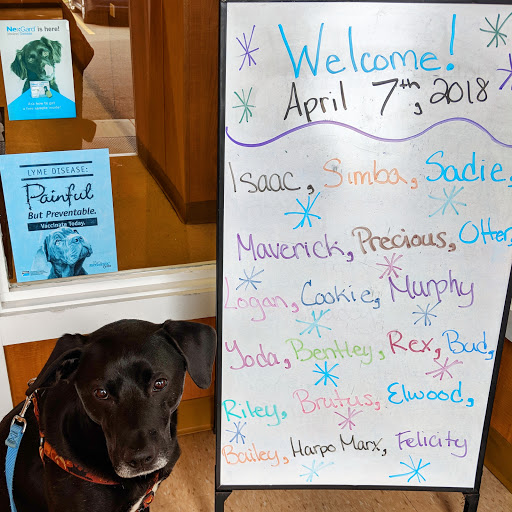 NexGard is here!
LYME DISEASE:
Painful
But Preventable.
Vaccinate Today.
Welcome!
April 7th, 2018
Isaac, Simba, Sadie,
Maverick, Precious, Otter,
Logan, Cookie, Murphy
Yoda, Bentley, Rex, Bud,
Riley, Brutus, Elwood,
Bailey, Harpo Marx, Felicity